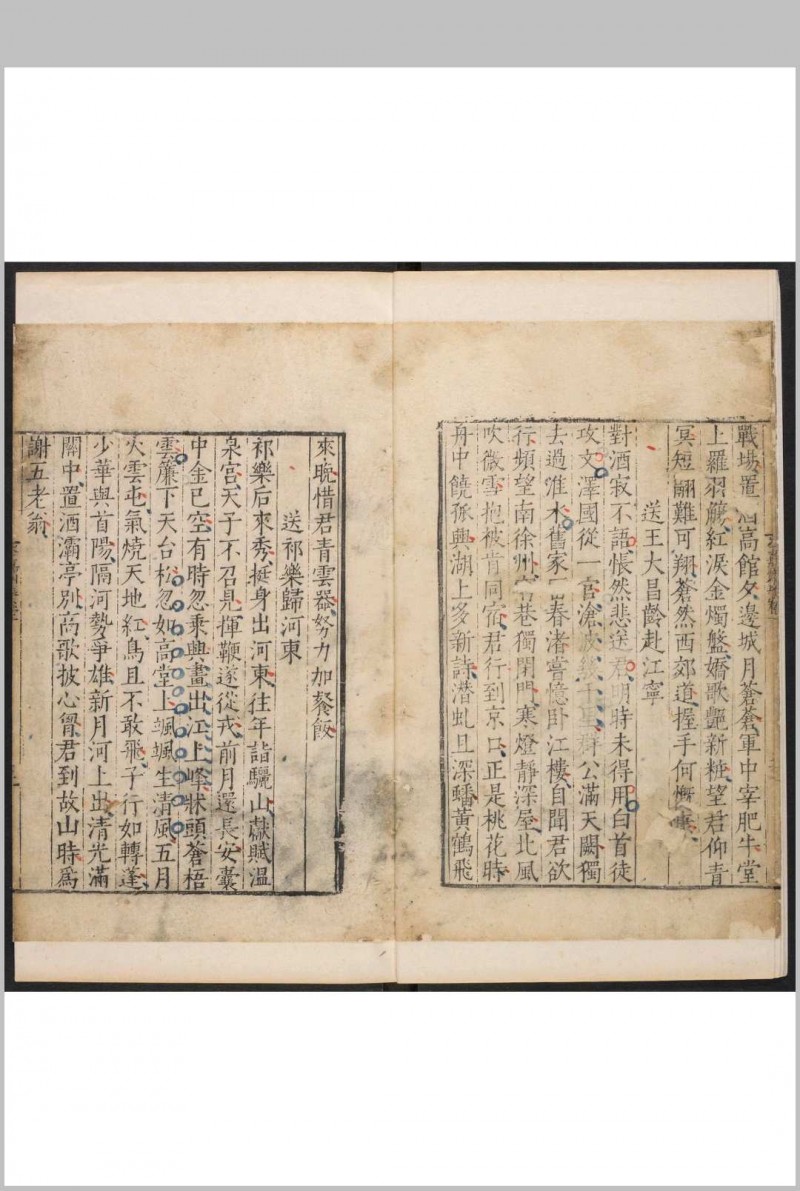 戰場置酒高館夕邊城月蒼蒼軍中宰肥牛堂
上羅羽觴紅淚金燭盤嬌歌艶新粧望君仰青
冥短翮難可翔蒼然西郊道握手何慨
送王大昌齡赴江寧
對酒寂不語悵然悲送君明時未得用白首徒
攻文澤國從一官滄波羣公滿天闕獨
去過淮水舊家春渚嘗憶卧江樓自聞君欲
行頻望南徐州巷獨閉門寒燈靜深屋北風
吹微雪抱被肯同宿君行到京口正是桃花時
舟中饒孤興湖上多新詩潜虬且深蟠黃鶴飛
來晩惜君青雲器努力加餐飯
送祁樂歸河東
祁樂后來秀挺身出河東往年詣驪山獻賦溫
泉宮天子不召見揮鞭遂從戎前月還長安囊
中金已空有時忽乗興畫出江上峰牀頭蒼梧
雲簾下天台松忽如高堂上颯颯生清風五月
火雲屯氣燒天地紅鳥且不敢飛子行如轉蓬
少華與首陽隔河勢爭雄新月河上出清光滿
關中置酒灞亭別高歌披心胷君到故山時爲
謝五老翁